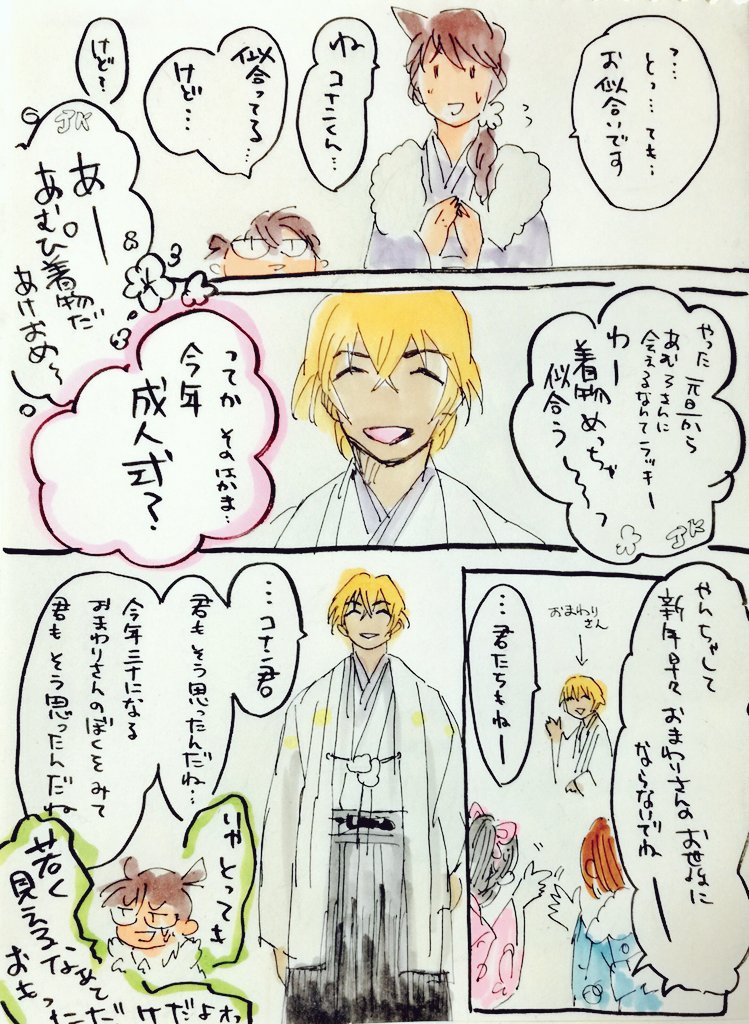 っ…
とっ…ても…
お似合いです
ね
コナンくん…
似合ってる…
けど…
けど?
JK
あー
あむぴ着物だ
あけおめ〜
やった 元旦から
あむろさんに
会えるなんてラッキー
わー
着物めっちゃ
似合う〜〜っ
JK
ってか そのはかま…
今年
成人式?
やんちゃして
新年早々 おまわりさんの お世話に
ならないでね
おまわり
さん
…君たちもねー
…コナン君
君も そう思ったんだね…
今年三十になる
おまわりさんのぼくをみて
君も そう思ったんだね
いや とっても
若く
見えるなぁて
おもっただけだよぉっ